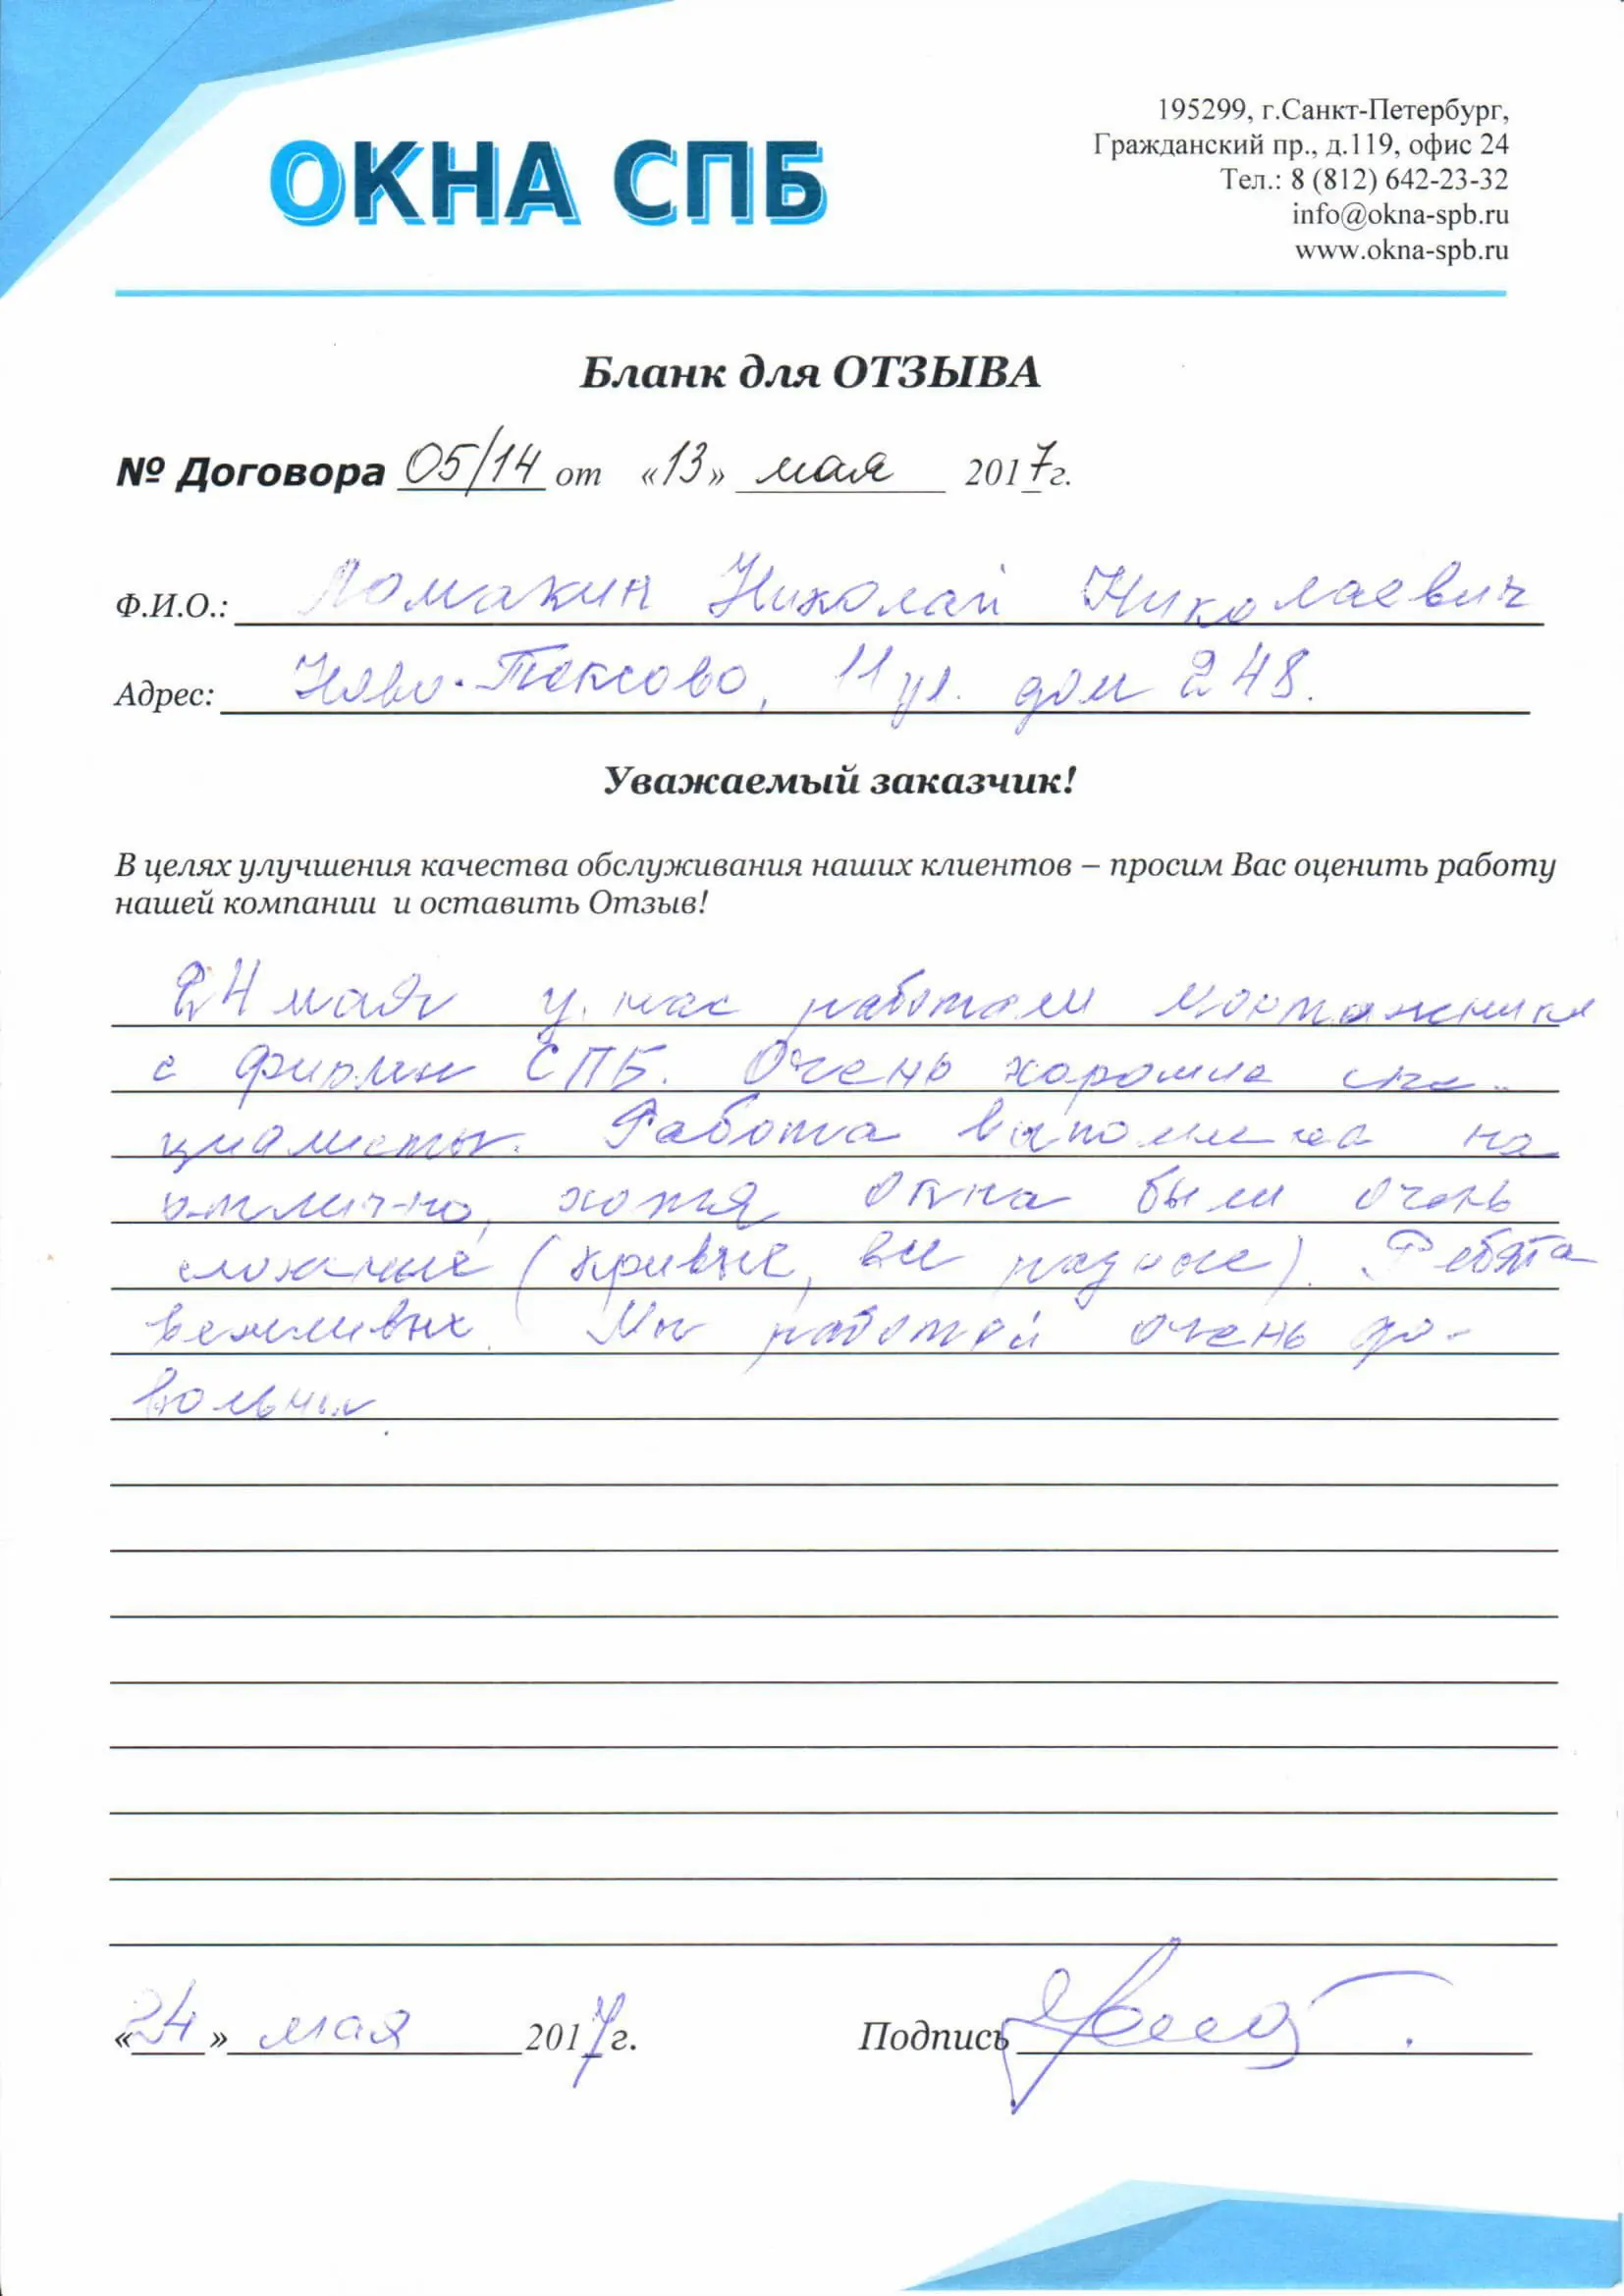 ОКНА СПБ
195299, г.Санкт-Петербург,
Гражданский пр., д.119, офис 24
Тел.: 8 (812) 642-23-32
info@okna-spb.ru
www.okna-spb.ru
Бланк для ОТЗЫВА
№ Договора 05/14 от «13» мая 2017г.
Ф.И.О.: Ломакин Николай Николаевич
Адрес: Ново-Токсово, 11 ул. дом 248.
Уважаемый заказчик!
В целях улучшения качества обслуживания наших клиентов – просим Вас оценить работу
нашей компании и оставить Отзыв!
24 мая у нас работали монтажники
с фирмы СПБ. Очень хорошие спе-
циалисты. Работа выполнена на
отлично, хотя окна были очень
сложные (кривые, все разные). Ребята
вежливые. Мы работой очень до-
вольны.
«24» мая 2017г.
Подпись